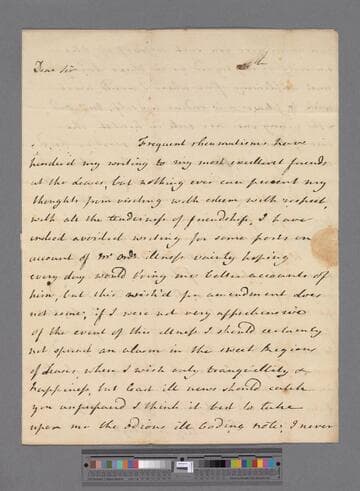 Dear Sir
Frequent rheumatisms have
hinder'd my writing to my most excellent friends
at the Leases, but nothing ever can prevent my
thoughts from visiting with esteem with respect,
with all the tenderness of friendship, I have
indeed avoided writing for some posts on
account of Mr Ords illness vainly hoping
every day would bring me better accounts of
him, but this wish'd for amendment does
not come; if I were not very apprehensive
of the event of this illness I should certainly
not spread an alarm in the sweet Regions
of Leases, where I wish only tranquillity &
happiness, but least ill news should catch
you unprepared I think it best to take
upon me the odious ill boding note; I never